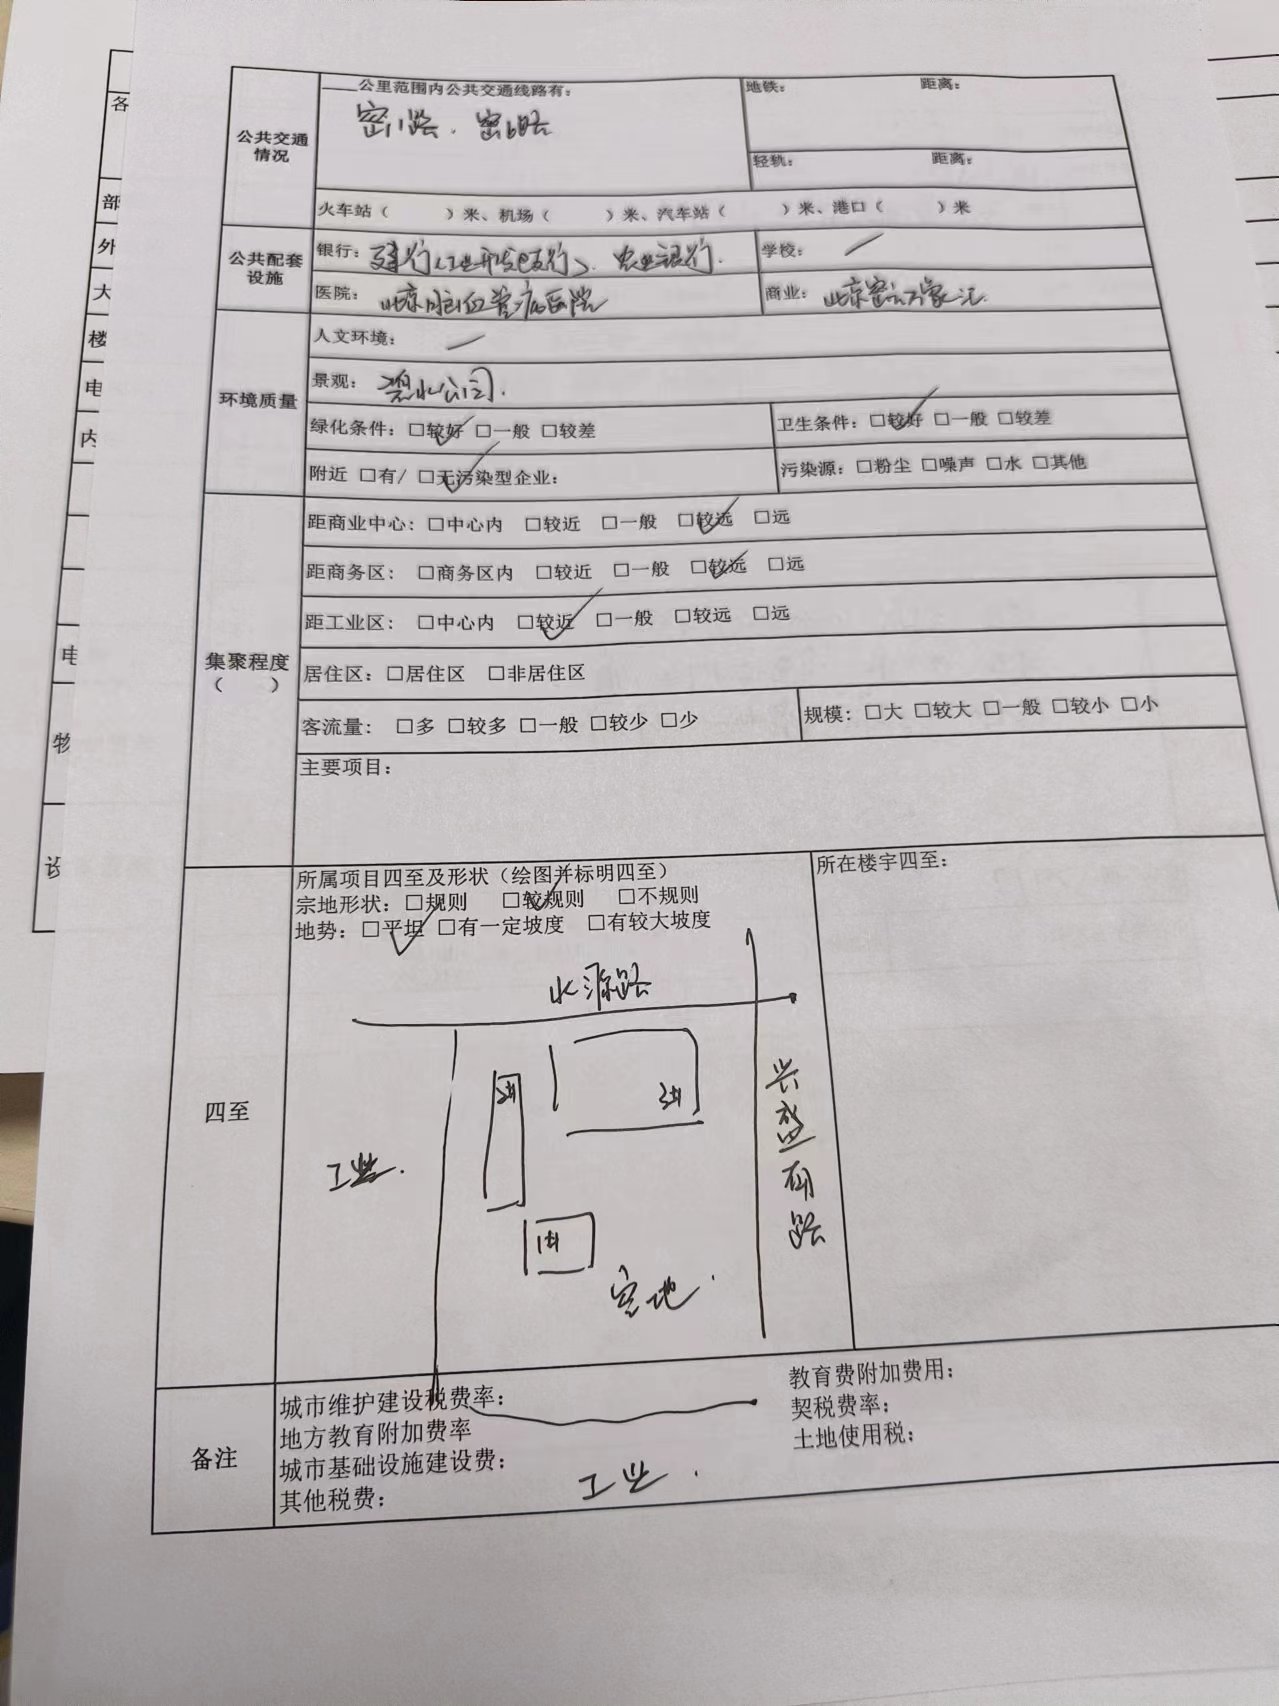 各
部
外
大
楼
电
内
电
物
设
公共交通情况
____公里范围内公共交通线路有:
密11路、密6路
地铁: 距离:
轻轨: 距离:
火车站( )米、机场( )米、汽车站( )米、港口( )米
公共配套设施
银行: 建行(工业开发区支行)、农业银行.
学校: /
医院: 北京脑血管病医院
商业:
环境质量
人文环境: /
景观: 碧水公园.
绿化条件: □较好✓ □一般 □较差
卫生条件: □较好✓ □一般 □较差
附近 □有/ □无污染型企业:✓
污染源: □粉尘 □噪声 □水 □其他
集聚程度( )
距商业中心: □中心内 □较近 □一般 □较远✓ □远
距商务区: □商务区内 □较近 □一般 □较远✓ □远
距工业区: □中心内 □较近✓ □一般 □较远 □远
居住区: □居住区 □非居住区
客流量: □多 □较多 □一般 □较少 □少
规模: □大 □较大 □一般 □较小 □小
主要项目:
四至
所属项目四至及形状(绘图并标明四至)
宗地形状: □规则 □较规则✓ □不规则
地势: □平坦✓ □有一定坡度 □有较大坡度
所在楼宇四至:
水源路
兴盛南路
工业.
空地.
备注
城市维护建设税费率:
教育费附加费用:
地方教育附加费率
契税费率:
城市基础设施建设费:
土地使用税:
其他税费:
工业.